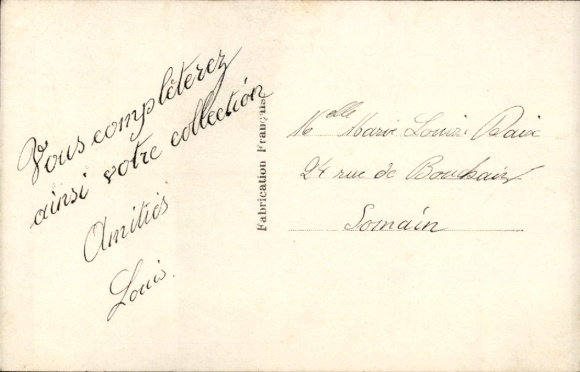 Vous complèterez
ainsi votre collection
Amitiés
Louis.
Fabrication Française
Melle Marie Louise Daix
24 rue de Bouchain
Somain